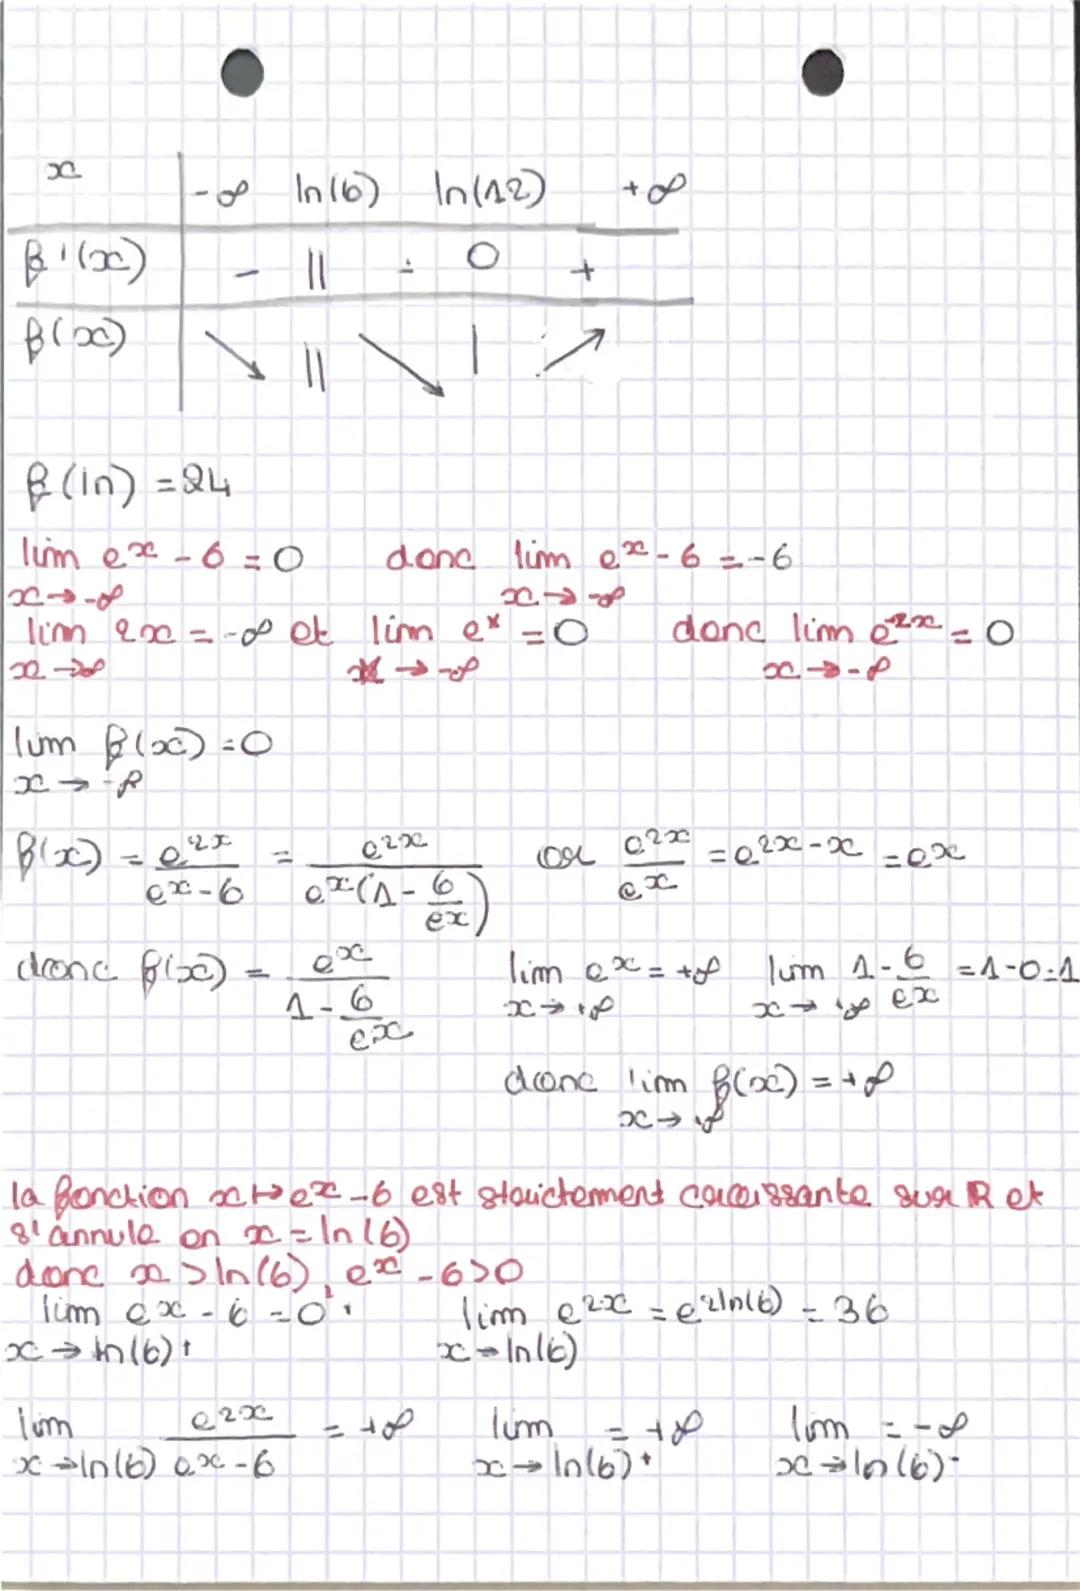 x -∞ ln(6) ln(12) +∞
f'(x) - || - 0 +
f(x) ↘ || ↘ | ↗
f(ln) = 24
lim e^x - 6 = 0 donc lim e^x - 6 = -6
x → -∞ x → -∞
lim 2x = -∞ et lim e^x = 0 donc lim e^2x = 0
x → -∞ x → -∞
lim f(x) = 0
x → -∞
f(x) = e^2x / (e^x - 6) = e^2x / (e^x(1 - 6/e^x)) or e^2x / e^x = e^2x-x = e^x
donc f(x) = e^x / (1 - 6/e^x) lim e^x = +∞ lim 1 - 6/e^x = 1-0=1
x → +∞ x → +∞
donc lim f(x) = +∞
x → +∞
la fonction x ↦ e^x - 6 est strictement croissante sur R et
s'annule en x = ln(6)
donc x > ln(6), e^x - 6 > 0
lim e^x - 6 = 0^+ lim e^2x = e^2ln(6) = 36
x → ln(6)+ x → ln(6)
lim e^2x / (e^x - 6) = +∞ lim = +∞ lim = -∞
x → ln(6) x → ln(6)+ x → ln(6)-